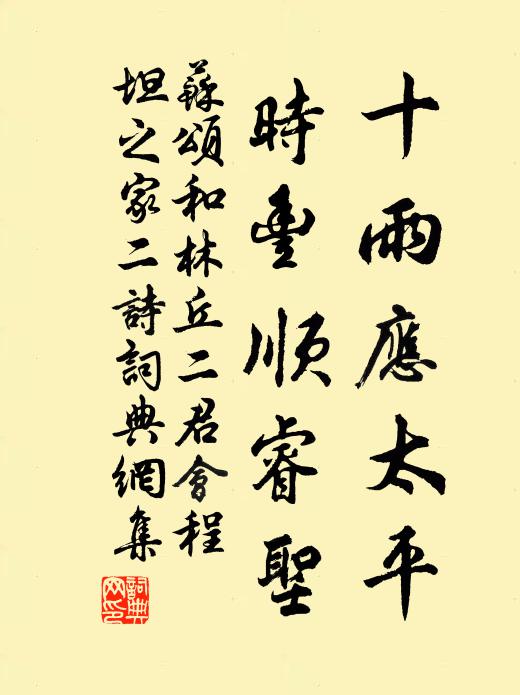 十雨應太平
時豐順睿聖
蘇頌和林丘二君會程
坦之家二詩詞典網集
詞典網印